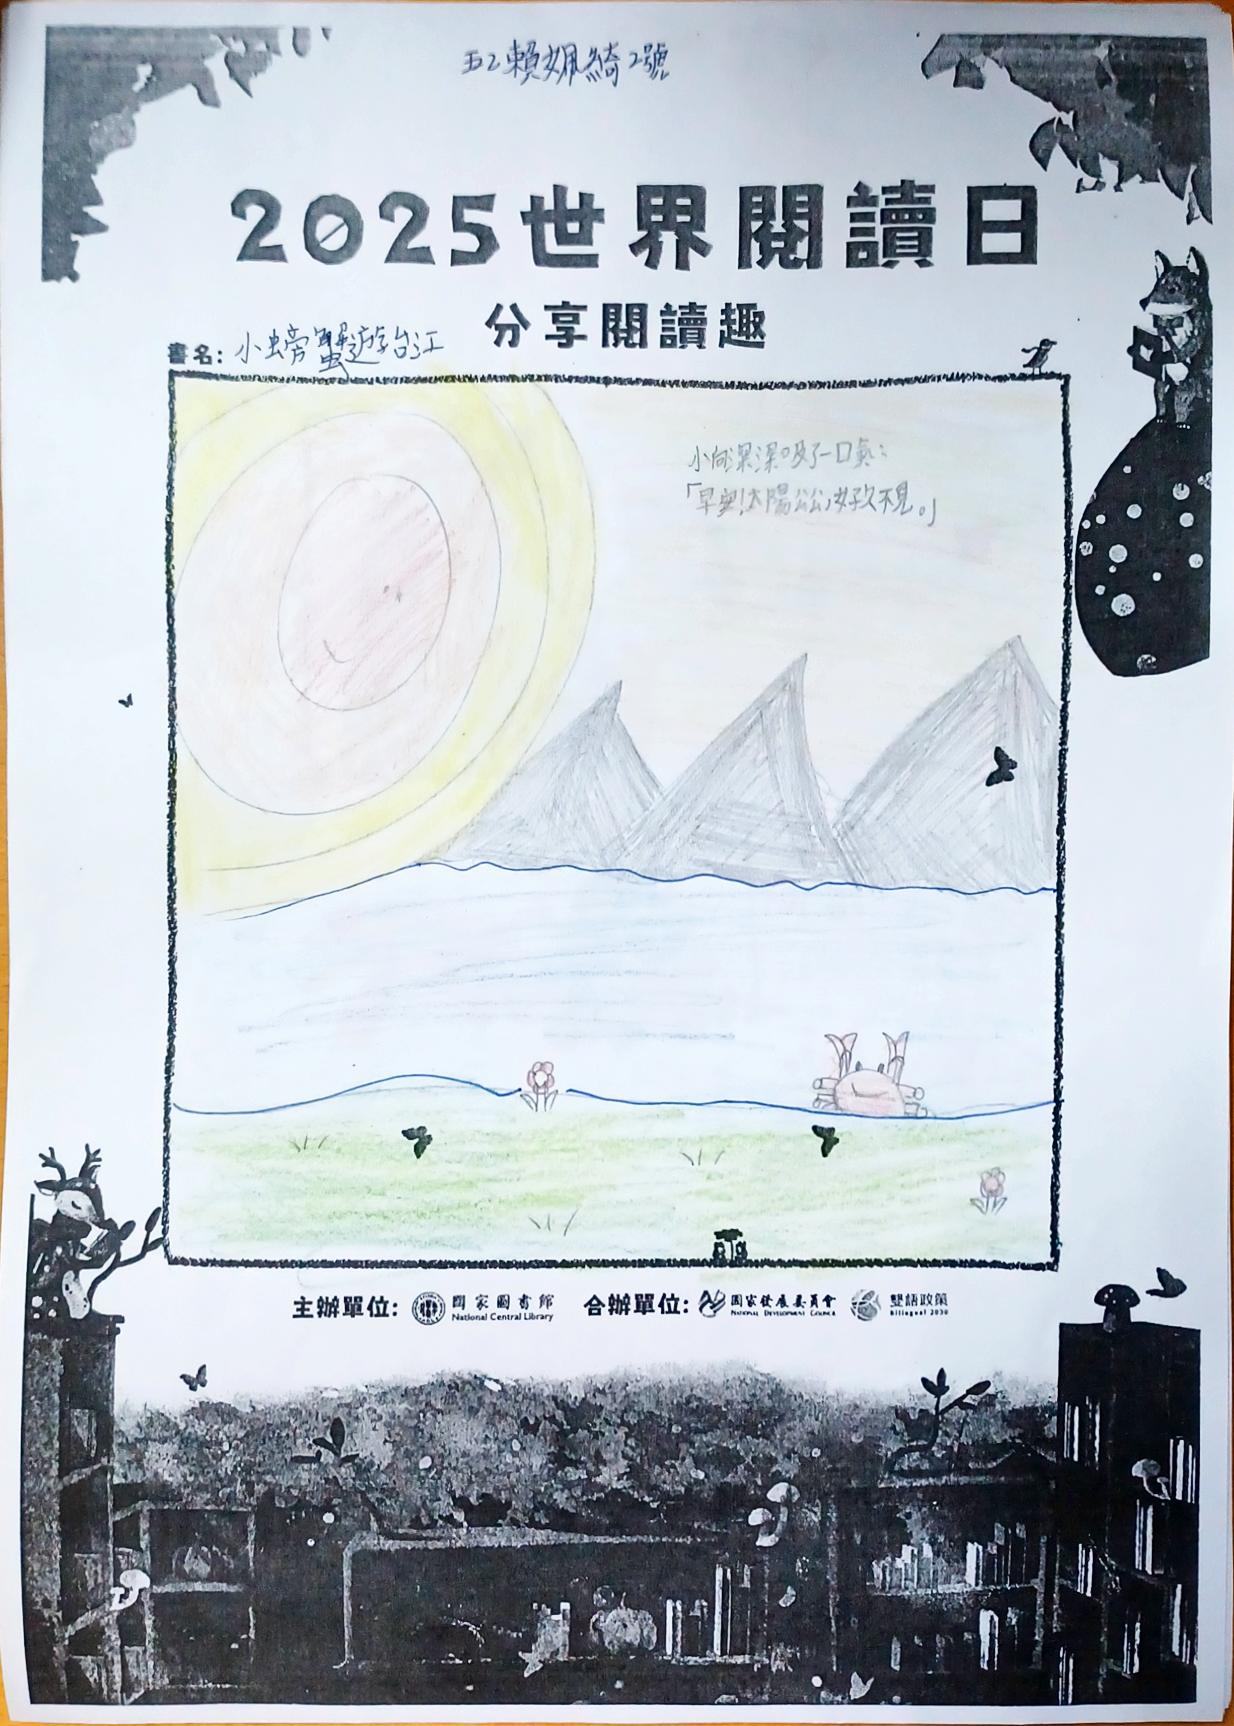 五乙賴姵綺2號
2025世界閱讀日
分享閱讀趣
書名:小螃蟹遊台江
小向深深吸了一口氣:
「早安!太陽公公,好久不見。」
主辦單位: 國家圖書館 National Central Library 合辦單位: 國家發展委員會 National Development Council 雙語政策 Bilingual 2030